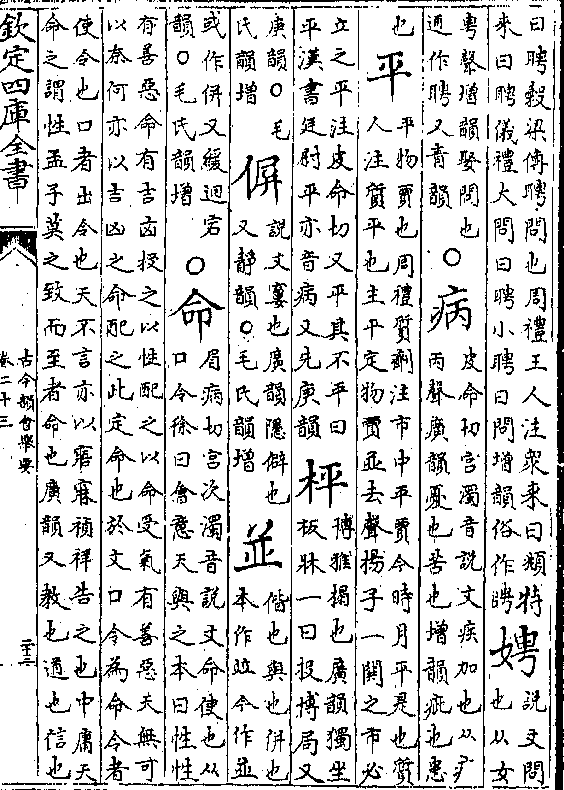 曰聘穀梁傳聘問也周禮王人注衆來曰頫特
來曰聘儀禮大問曰聘小聘曰問增韻俗作聘
娉
說文問
也从女
甹聲增韻娶問也
通作聘又青韻
○病
皮命切宫濁音說文疾加也从疒
丙聲廣韻憂也苦也增韻疵也惡
也
平
平物賈也周禮質劑注市中平賈今時月平是也質
人注質平也主平定物賈並去聲揚子一閧之市必
立之平注皮命切又平其不平曰
平漢書廷尉平亦音病又先庚韻
枰
博雅榻也廣韻獨坐
板牀一曰投博局又
庚韻○毛
氏韻增
偋
說文窶也廣韻隱僻也
又靜韻○毛氏韻增
並
偕也與也併也
本作竝今作並
或作併又緩迥宕
韻○毛氏韻增
○命
眉病切宫次濁音說文命使也从
口令徐曰會意天與之本曰性性
有善惡命有吉凶授之以性配之以命受氣有善惡夫無可
以奈何亦以吉凶之命配之此定命也於文口令為命令者
使令也口者出令也天不言亦以寤寐禎祥告之也中庸天
命之謂性孟子莫之致而至者命也廣韻又教也道也信也
欽定四庫全書
古今韻會舉要
卷二十三